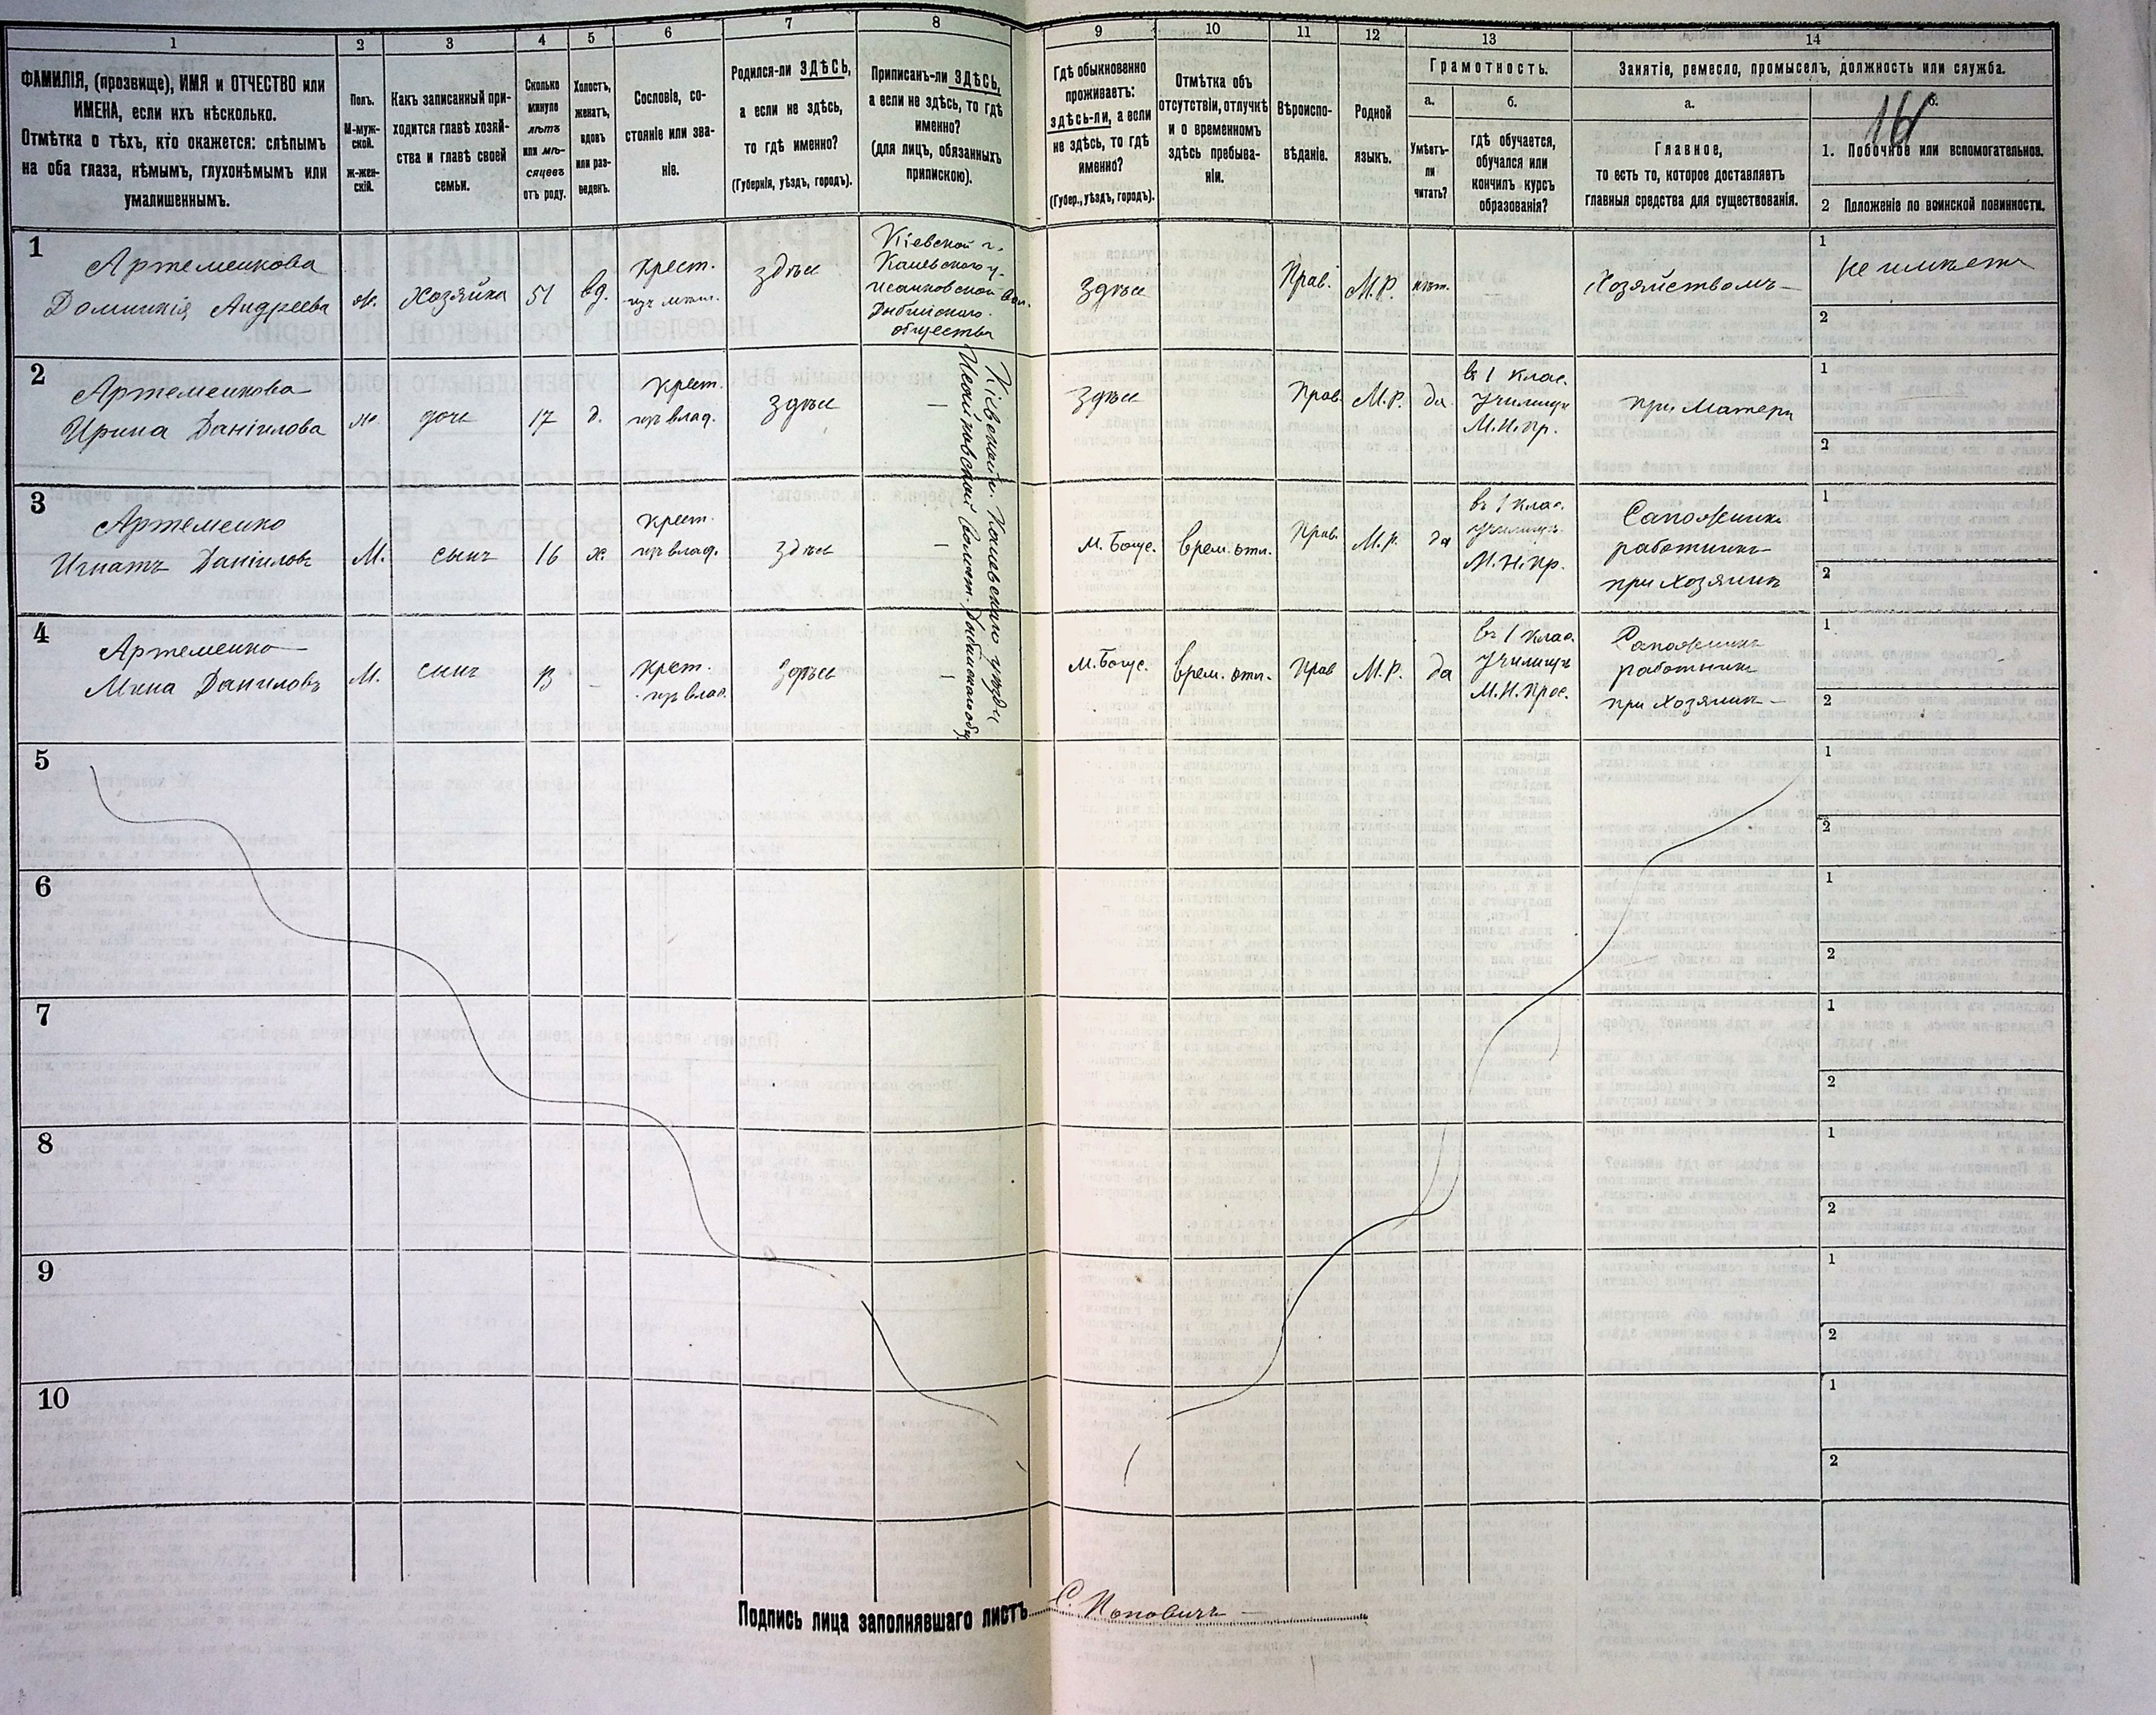 1 2 3 4 5 6 7 8 9 10 11 12 13 14
ФАМИЛІЯ, (прозвище), ИМЯ и ОТЧЕСТВО или
ИМЕНА, если ихъ нѣсколько.
Отмѣтка о тѣхъ, кто окажется: слѣпымъ
на оба глаза, нѣмымъ, глухонѣмымъ или
умалишеннымъ.
Полъ.
М-муж-
ской.
ж-жен-
скій.
Какъ записанный при-
ходится главѣ хозяй-
ства и главѣ своей
семьи.
Сколько
минуло
лѣтъ
или мѣ-
сяцевъ
отъ роду.
Холостъ,
женатъ,
вдовъ
или раз-
веденъ.
Сословіе, со-
стояніе или зва-
ніе.
Родился-ли ЗДѢСЬ,
а если не здѣсь,
то гдѣ именно?
(Губернія, уѣздъ, городъ).
Приписанъ-ли ЗДѢСЬ,
а если не здѣсь, то гдѣ
именно?
(для лицъ, обязанныхъ
припискою).
Гдѣ обыкновенно
проживаетъ:
здѣсь-ли, а если
не здѣсь, то гдѣ
именно?
(Губер., уѣздъ, городъ).
Отмѣтка объ
отсутствіи, отлучкѣ
и о временномъ
здѣсь пребыва-
ніи.
Вѣроиспо-
вѣданіе.
Родной
языкъ.
Грамотность.
а.
Умѣетъ-
ли
читать?
б.
гдѣ обучается,
обучался или
кончилъ курсъ
образованія?
Занятіе, ремесло, промыселъ, должность или служба.
а.
Главное,
то есть то, которое доставляетъ
главныя средства для существованія.
б.
16
1. Побочное или вспомогательное.
2 Положеніе по воинской повинности.
1
Артеменкова
Домникія Андреева
ж.
Хозяйка
51
вд.
Крест.
здѣсь
Кіевской г.
Каневскаго у.
вол.
Дыбинскаго
общества
здѣсь
Прав.
М.Р.
нѣт.
Хозяйствомъ
1
не имѣетъ
2
2
Артеменкова
Ирина Даніилова
ж.
дочь
17
д.
Крест.
изъ влад.
здѣсь
—
здѣсь
Прав.
М.Р.
да
въ 1 клас.
училищѣ
М.Н.Пр.
при Матери
1
2
3
Артеменко
Игнатъ Даніиловъ
М.
сынъ
16
х.
Крест.
изъ влад.
здѣсь
—
м. Богус.
врем. отл.
Прав.
М.Р.
да
въ 1 клас.
училищѣ
М.Н.Пр.
Сапожникъ
работникъ
при хозяинѣ
1
2
4
Артеменко
Мина Даниловъ
М.
сынъ
13
—
Крест.
изъ влад.
здѣсь
—
м. Богус.
врем. отл.
Прав
М.Р.
да
въ 1 клас.
училищѣ
М.Н.Прос.
Сапожникъ
работникъ
при хозяинѣ
1
2
Кіевской г. Каневскаго уѣзда
Дыбинскаго общ.
5
1
2
6
1
2
7
1
2
8
1
2
9
1
2
10
1
2
Подпись лица заполнявшаго листъ С. Поповичъ